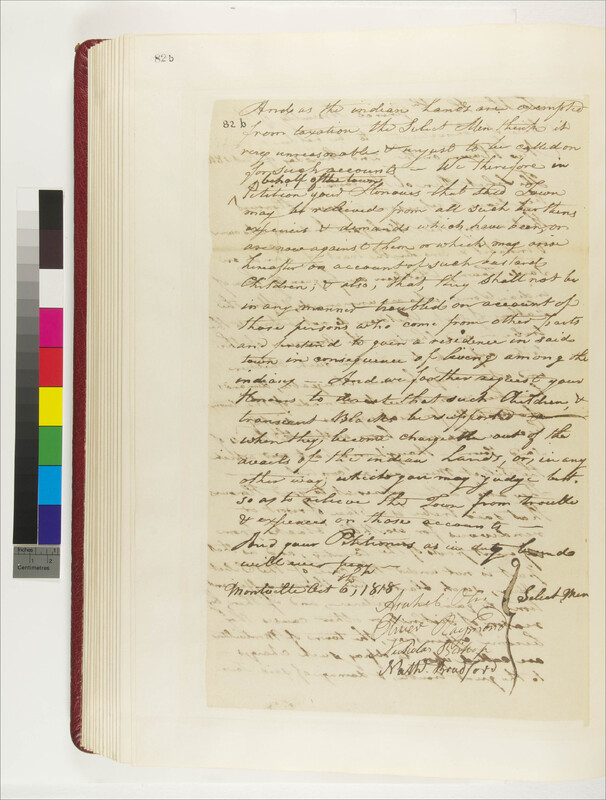 82 b
82 b
And as the indian Lands are exempted
from taxation the Select Men think it
very unreasonable & unjust to be called on
for such accounts — We therefore in
behalf of the town
Petition your Honours that this Town
may be relieved from all such burthens
expences & demands which have been, or
are now against them or which may arise
hereafter on account of such bastard
Children; & also, that, they Shall not be
in any manner troubled on account of
those persons who come from other parts
and pretend to gain a residence in said
town in consequence of living among the
indians — And we further request your
Honours to direct that such Children, &
transient Blacks be supported
when they become chargeable out of the
avails of the indian Lands, or, in any
other way which you may judge best.
so as to relieve the Town from trouble
& expences on those accounts —
And your Petitioners as in duty bound
will ever pray —
Montville Oct 6th, 1818
Select Men
Oliver Raymond
Nathl Bradford
Inches
Centimetres